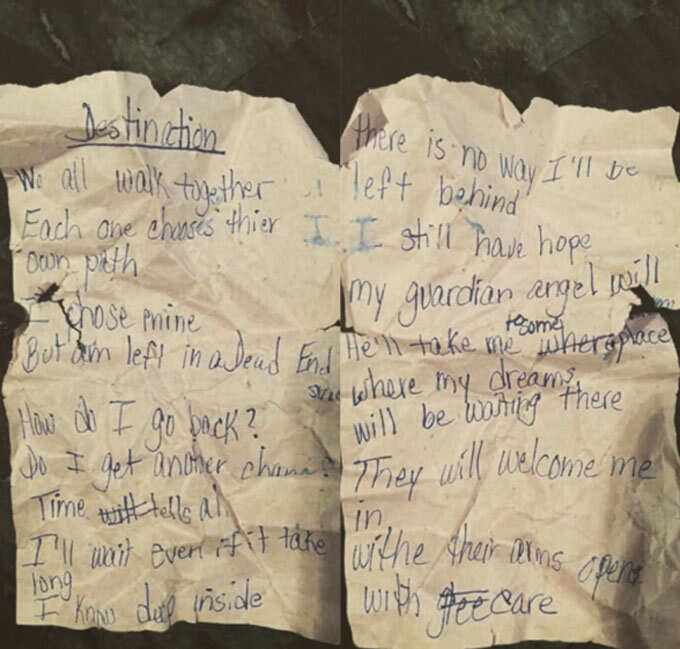 Destination
We all walk together
Each one chooses thier
own path
I chose mine
But am left in a Dead End
How do I go back?
Do I get another
Time will tells all
I'll wait even if it take
long
I know deep inside
there is no way I'll be
left behind
I still have hope
my guardian angel will
to some
He'll take me where place
where my dreams
will be waiting there
They will welcome me
in
withe their arms open
with free care